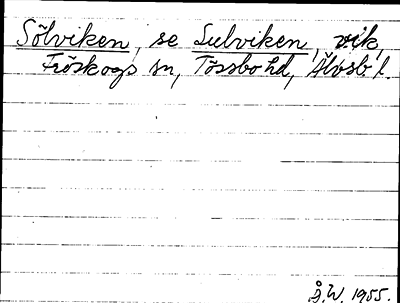 Sölviken, se Sulviken, vik,
Fröskogs sn, Tössbo hd, Älvsb l.
Å.W. 1955.